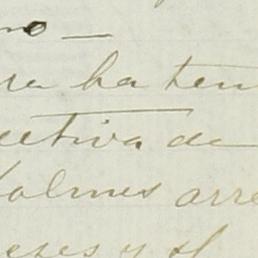 no —
ra ha ten
ectiva de
Holmes arre
eses y el